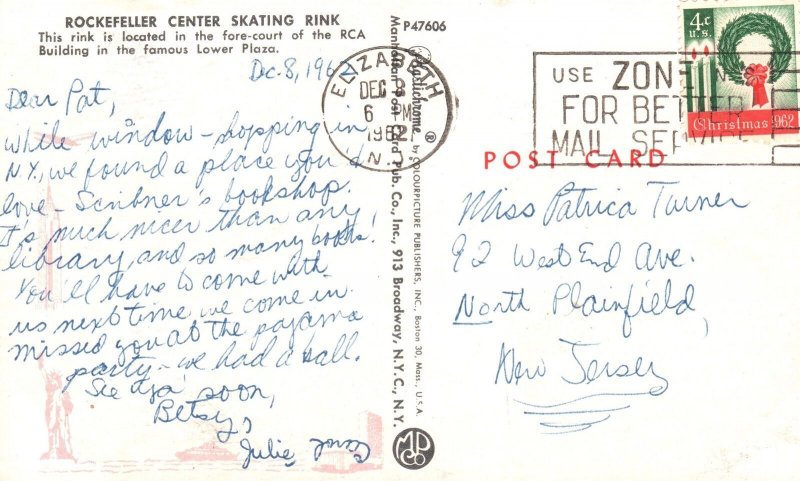 ROCKEFELLER CENTER SKATING RINK
This rink is located in the fore-court of the RCA
Building in the famous Lower Plaza.
Dec. 8, 1962
Dear Pat,
While window-shopping in
N.Y., we found a place you'd
love - Scribner's bookshop.
It's much nicer than any
library, and so many books!
You'll have to come with
us next time we come in.
missed you at the pajama
party - we had a ball.
See ya' soon,
Betsy,
Julie, Carol
P47606
Plastichrome ® by COLOURPICTURE PUBLISHERS, INC., Boston 30, Mass., U.S.A.
Manhattan Post Card Pub. Co., Inc., 913 Broadway, N.Y.C., N.Y.
MPC
ELIZABETH
DEC
6 PM
1962
N.
USE ZONE
FOR BETTER
MAIL SERVICE
4¢
U.S.
Christmas 1962
POST CARD
Miss Patrica Turner
92 West End Ave.
North Plainfield,
New Jersey